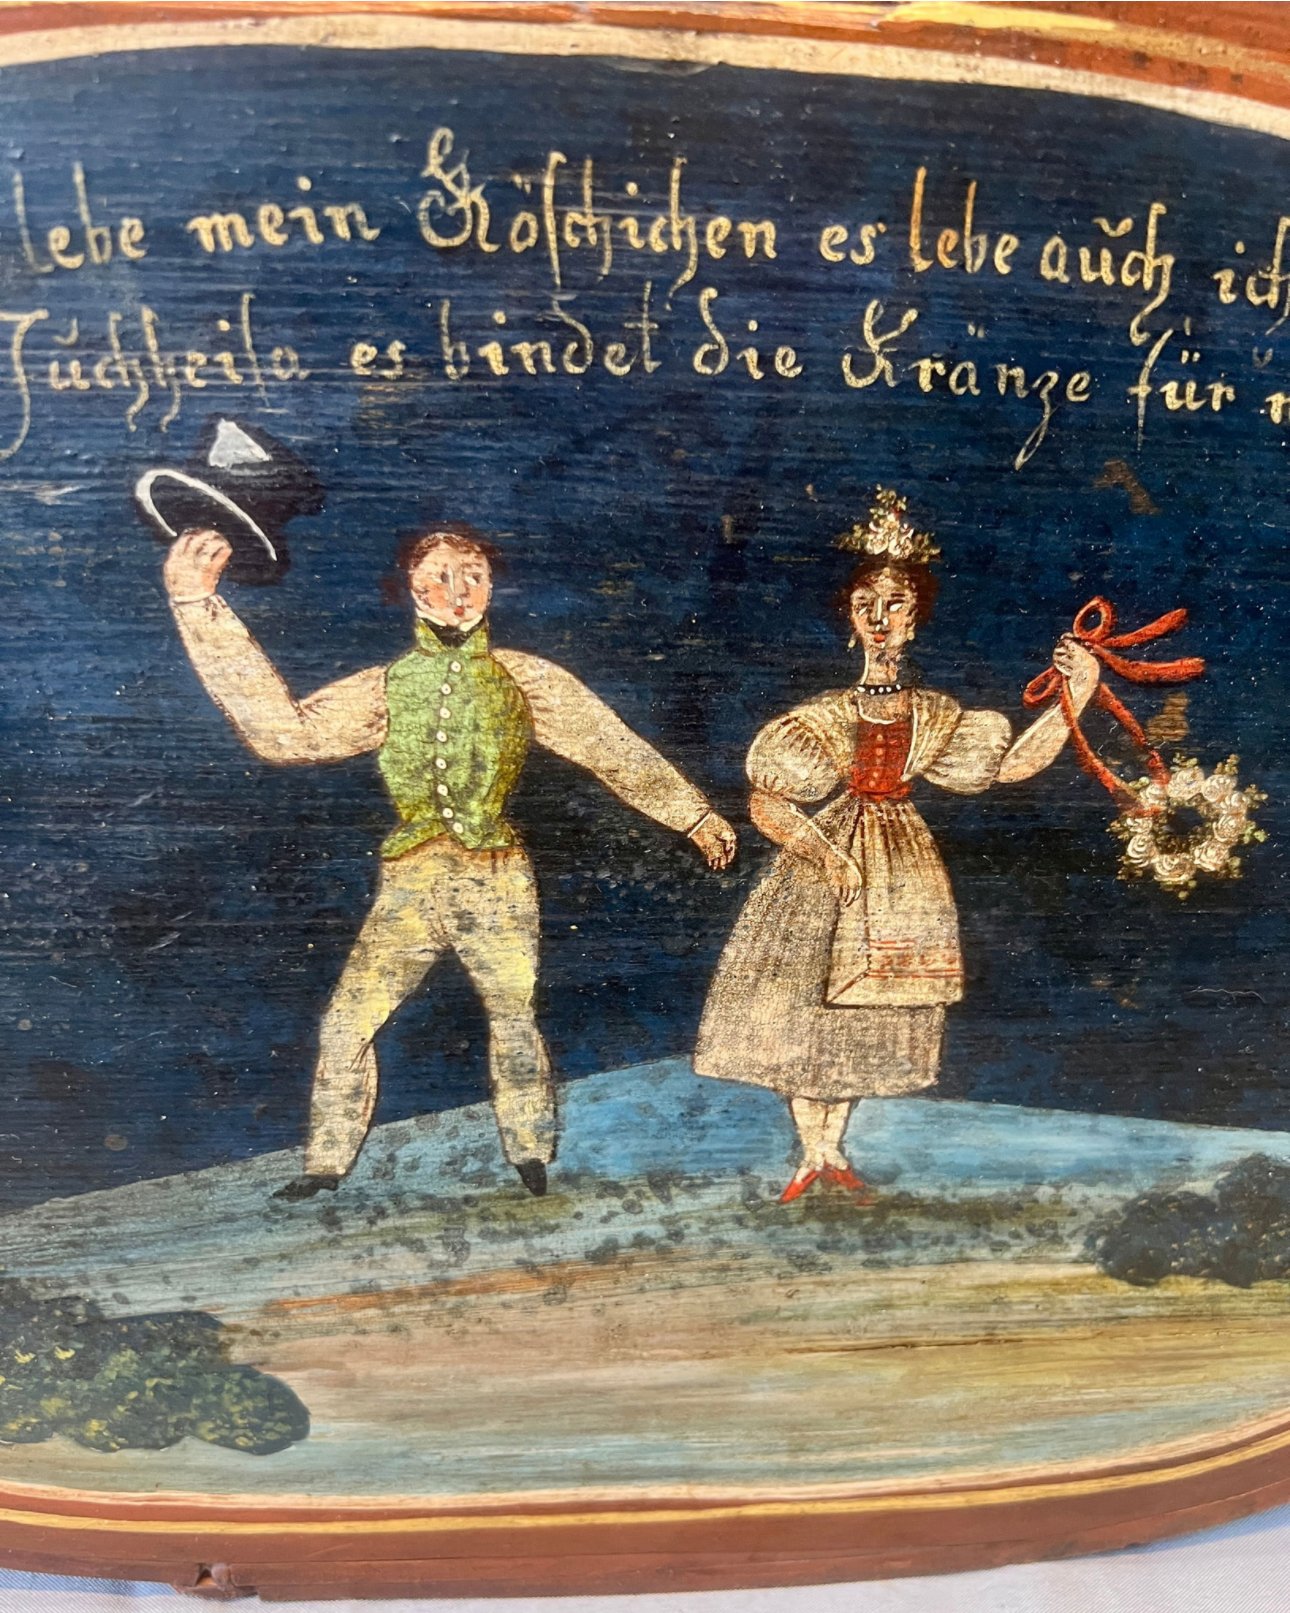 lebe mein Röschichen es lebe auch ich
Juchheisa es bindet die Kränze für